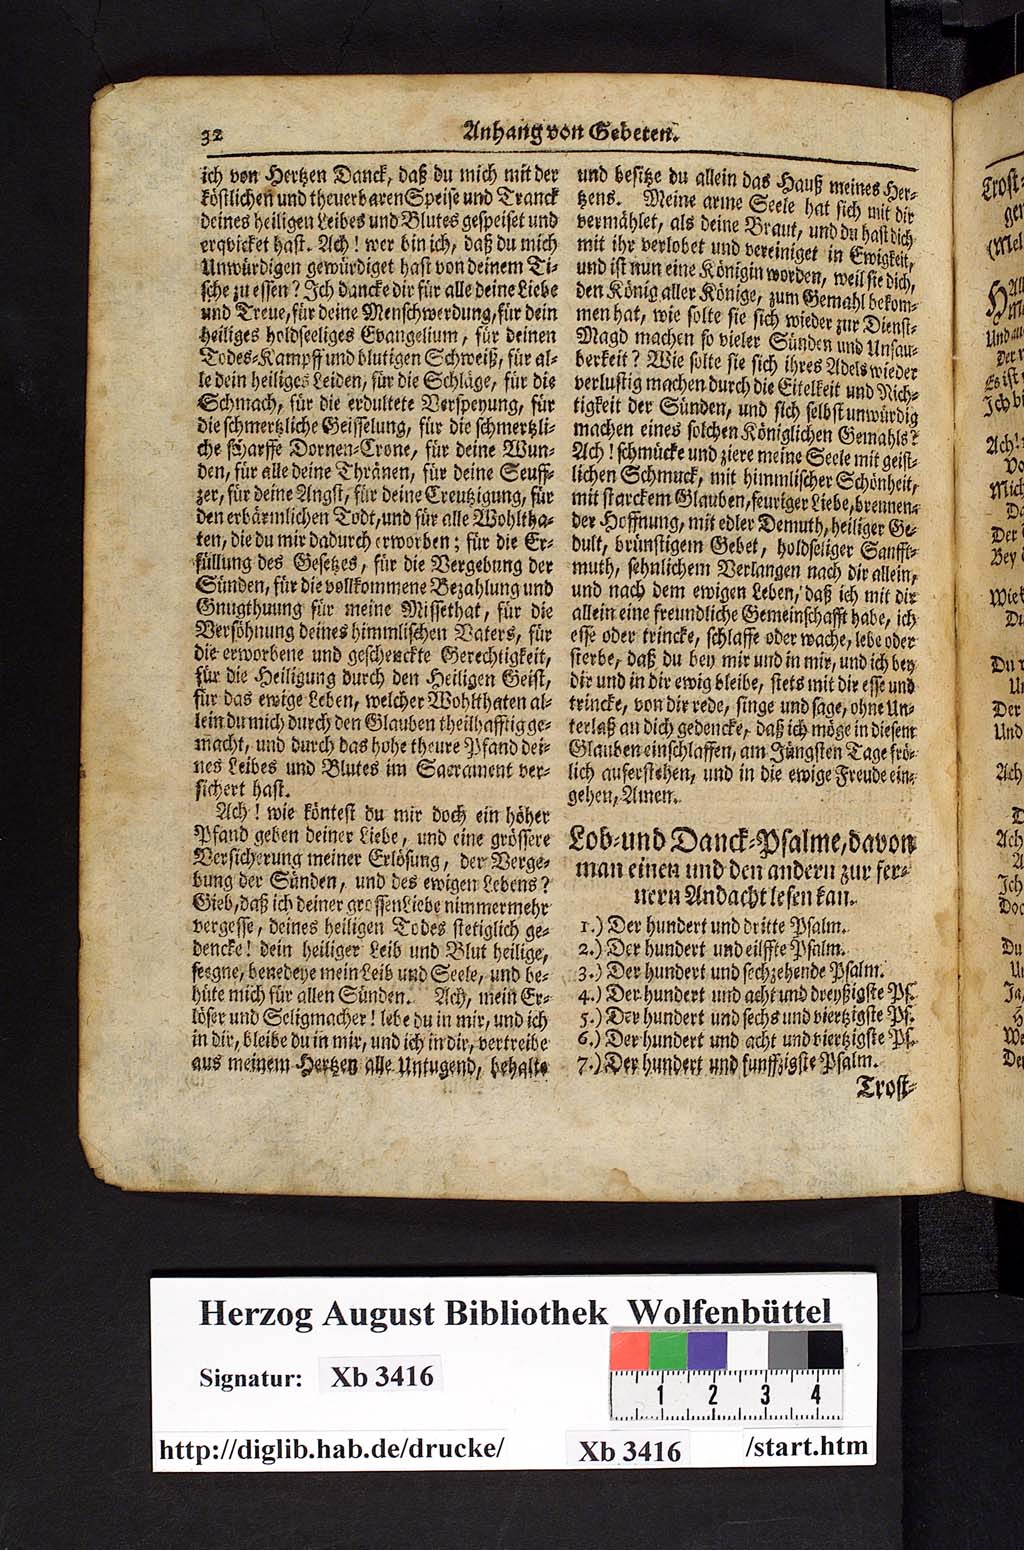 32
Anhang von Gebeten.
ich von Hertzen Danck, daß du mich mit der
köstlichen und theuerbaren Speise und Tranck
deines heiligen Leibes und Blutes gespeiset und
erqvicket hast. Ach! wer bin ich, daß du mich
Unwürdigen gewürdiget hast von deinem Ti-
sche zu essen? Ich dancke dir für alle deine Liebe
und Treue, für deine Menschwerdung, für dein
heiliges holdseeliges Evangelium, für deinen
Todes-Kampff und blutigen Schweiß, für al-
le dein heiliges Leiden, für die Schläge, für die
Schmach, für die erdultete Verspeyung, für
die schmertzliche Geisselung, für die schmertzli-
che scharffe Dornen-Crone, für deine Wun-
den, für alle deine Thränen, für deine Seuff-
zer, für deine Angst, für deine Creutzigung, für
den erbärmlichen Todt, und für alle Wohltha-
ten, die du mir dadurch erworben; für die Er-
füllung des Gesetzes, für die Vergebung der
Sünden, für die vollkommene Bezahlung und
Gnugthuung für meine Missethat, für die
Versöhnung deines himmlischen Vaters, für
die erworbene und geschenckte Gerechtigkeit,
für die Heiligung durch den Heiligen Geist,
für das ewige Leben, welcher Wohlthaten al-
lein du mich durch den Glauben theilhafftig ge-
macht, und durch das hohe theure Pfand dei-
nes Leibes und Blutes im Sacrament ver-
sichert hast.
Ach! wie köntest du mir doch ein höher
Pfand geben deiner Liebe, und eine grössere
Versicherung meiner Erlösung, der Verge-
bung der Sünden, und des ewigen Lebens?
Gieb, daß ich deiner grossen Liebe nimmermehr
vergesse, deines heiligen Todes stetiglich ge-
dencke! dein heiliger Leib und Blut heilige,
seegne, benedeye mein Leib und Seele, und be-
hüte mich für allen Sünden. Ach, mein Er-
löser und Seligmacher! lebe du in mir, und ich
in dir, bleibe du in mir, und ich in dir, vertreibe
aus meinem Hertzen alle Untugend, behalte
und besitze du allein das Hauß meines Her-
tzens. Meine arme Seele hat sich mit dir
vermählet, als deine Braut, und du hast dich
mit ihr verlobet und vereiniget in Ewigkeit,
und ist nun eine Königin worden, weil sie dich,
den König aller Könige, zum Gemahl bekom-
men hat, wie solte sie sich wieder zur Dienst-
Magd machen so vieler Sünden und Unsau-
berkeit? Wie solte sie sich ihres Adels wieder
verlustig machen durch die Eitelkeit und Nich-
tigkeit der Sünden, und sich selbst unwürdig
machen eines solchen Königlichen Gemahls?
Ach! schmücke und ziere meine Seele mit geist-
lichen Schmuck, mit himmlischer Schönheit,
mit starckem Glauben, feuriger Liebe, brennen-
der Hoffnung, mit edler Demuth, heiliger Ge-
dult, brünstigem Gebet, holdseliger Sanfft-
muth, sehnlichem Verlangen nach dir allein,
und nach dem ewigen Leben, daß ich mit dir
allein eine freundliche Gemeinschafft habe, ich
esse oder trincke, schlaffe oder wache, lebe oder
sterbe, daß du bey mir und in mir, und ich bey
dir und in dir ewig bleibe, stets mit dir esse und
trincke, von dir rede, singe und sage, ohne Un-
terlaß an dich gedencke, daß ich möge in diesem
Glauben einschlaffen, am Jüngsten Tage frö-
lich auferstehen, und in die ewige Freude ein-
gehen, Amen.
Lob- und Danck-Psalme, davon
man einen und den andern zur fer-
nern Andacht lesen kan.
1.) Der hundert und dritte Psalm.
2.) Der hundert und eilffte Psalm.
3.) Der hundert und sechzehende Psalm.
4.) Der hundert und acht und dreyßigste Ps.
5.) Der hundert und sechs und viertzigste Ps.
6.) Der hundert und acht und viertzigste Ps.
7.) Der hundert und funffzigste Psalm.
Trost-
Trost-
(Mel
Und
Es ist
Ich bi
Ach!
Vo
Mich
Da
Der
Bey
Wie
Du
Du
Un
Der
Und
Ach
D
Ach
A
Ich
Doc
Du
Un
Ja,
H
We
Den
Herzog August Bibliothek Wolfenbüttel
Signatur: Xb 3416
1 2 3 4
http://diglib.hab.de/drucke/ Xb 3416 /start.htm